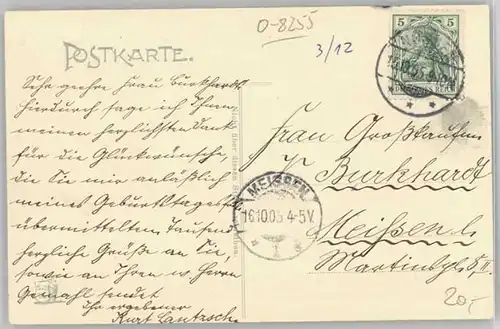 O-8255
3/12
POSTKARTE.
5 5
Sehr geehrte Frau Burkhardt.
Hierdurch sage ich Ihnen
meinen herzlichsten Dank
für die Glückwünsche,
die Sie mir anläßlich
meines Geburtstages
übermittelten. Tausend
herzliche Grüße an Sie,
sowie an Ihren w. Herrn
Gemahl sendet
Ihr ergebener
Kurt Lantzsch
Frau Großkaufm.
Burkhardt
MEISSEN
16.10.05 4-5V.
1
Meißen
Martinspl. 5, II
20.-